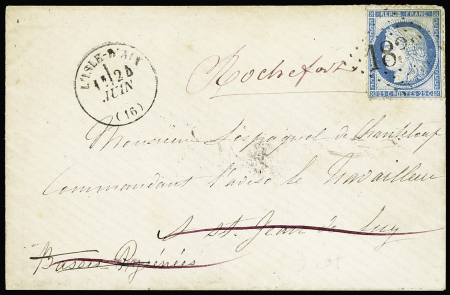 L'ISLE-D'AIX
24
JUIN
(16)
REPUB. FRANC.
25 C. POSTES 25 C.
Rochefort
Monsieur Lespagnol de Chanteloup
Commandant l'aviso le Travailleur
A St. Jean de Luz
Basses Pyrénées